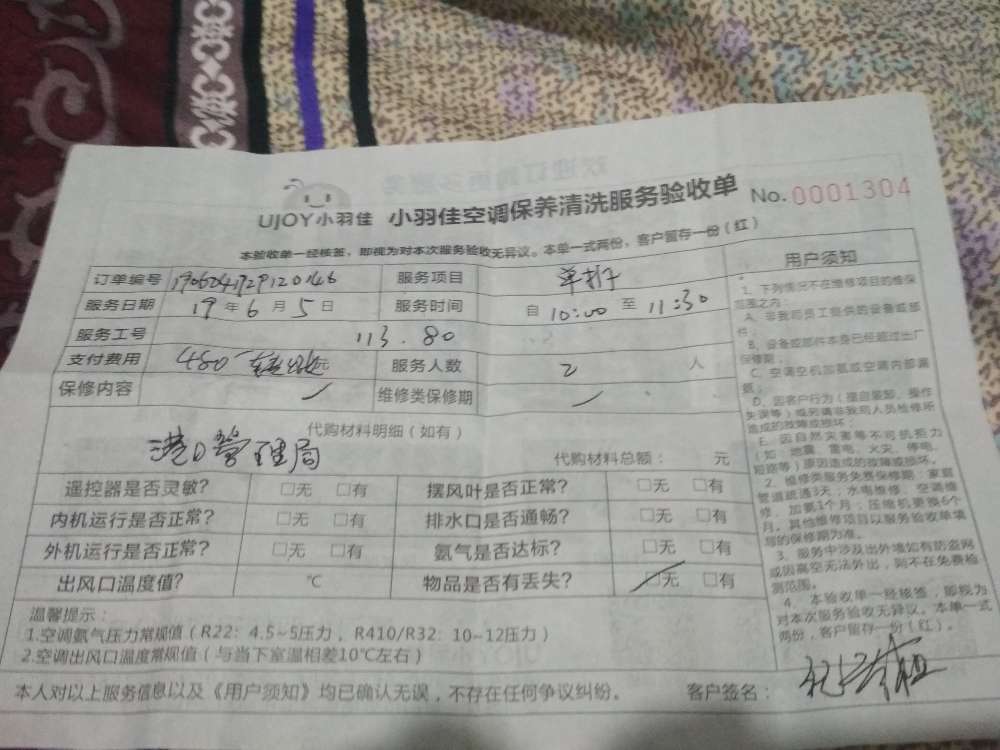 UJOY小羽佳 小羽佳空调保养清洗服务验收单 No.0001304
本验收单一经核签，即视为对本次服务验收无异议。本单一式两份，客户留存一份（红）
订单编号 服务项目 单拆
服务日期 19年6月5日 服务时间 自10:00至11:30
服务工号 113.80
支付费用 480 元 服务人数 2 人
保修内容 / 维修类保修期 /
代购材料明细（如有）
港口管理局
代购材料总额： 元
遥控器是否灵敏？ □无 □有 摆风叶是否正常？ □无 □有
内机运行是否正常？ □无 □有 排水口是否通畅？ □无 □有
外机运行是否正常？ □无 □有 氨气是否达标？ □无 □有
出风口温度值？ ℃ 物品是否有丢失？ □无 □有
温馨提示：
1.空调氨气压力常规值（R22：4.5~5压力，R410/R32：10~12压力）
2.空调出风口温度常规值（与当下室温相差10℃左右）
本人对以上服务信息以及《用户须知》均已确认无误，不存在任何争议纠纷。 客户签名：
用户须知
1、下列情况不在维修项目的维保
范围之内：
A、非我司员工提供的设备或部
件；
B、设备或部件本身已经超过出厂
保修期；
C、空调空机加氨或空调内部漏
氨；
D、因客户行为（擅自装卸、操作
失误等）或另请非我司人员检修所
造成的故障或损坏；
E、因自然灾害等不可抗拒力
（如：地震、雷电、火灾、停电、
短路等）原因造成的故障或损坏。
2、维修类服务免费保修期：家庭
管道疏通3天；水电维修、空调维
修、加氨1个月；压缩机更换6个
月。其他维修项目以服务验收单填
写的保修期为准。
3、服务中涉及出外墙如有防盗网
或因高空无法外出，则不在免费检
测范围。
4、本验收单一经核签，即视为
对本次服务验收无异议。本单一式
两份，客户留存一份（红）。